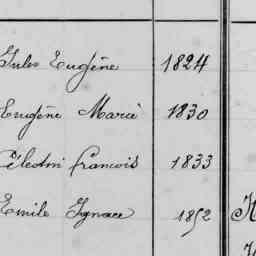 Jules Eugène 1824
Eugène Marie 1830
François 1833
Emile Ignace 1852